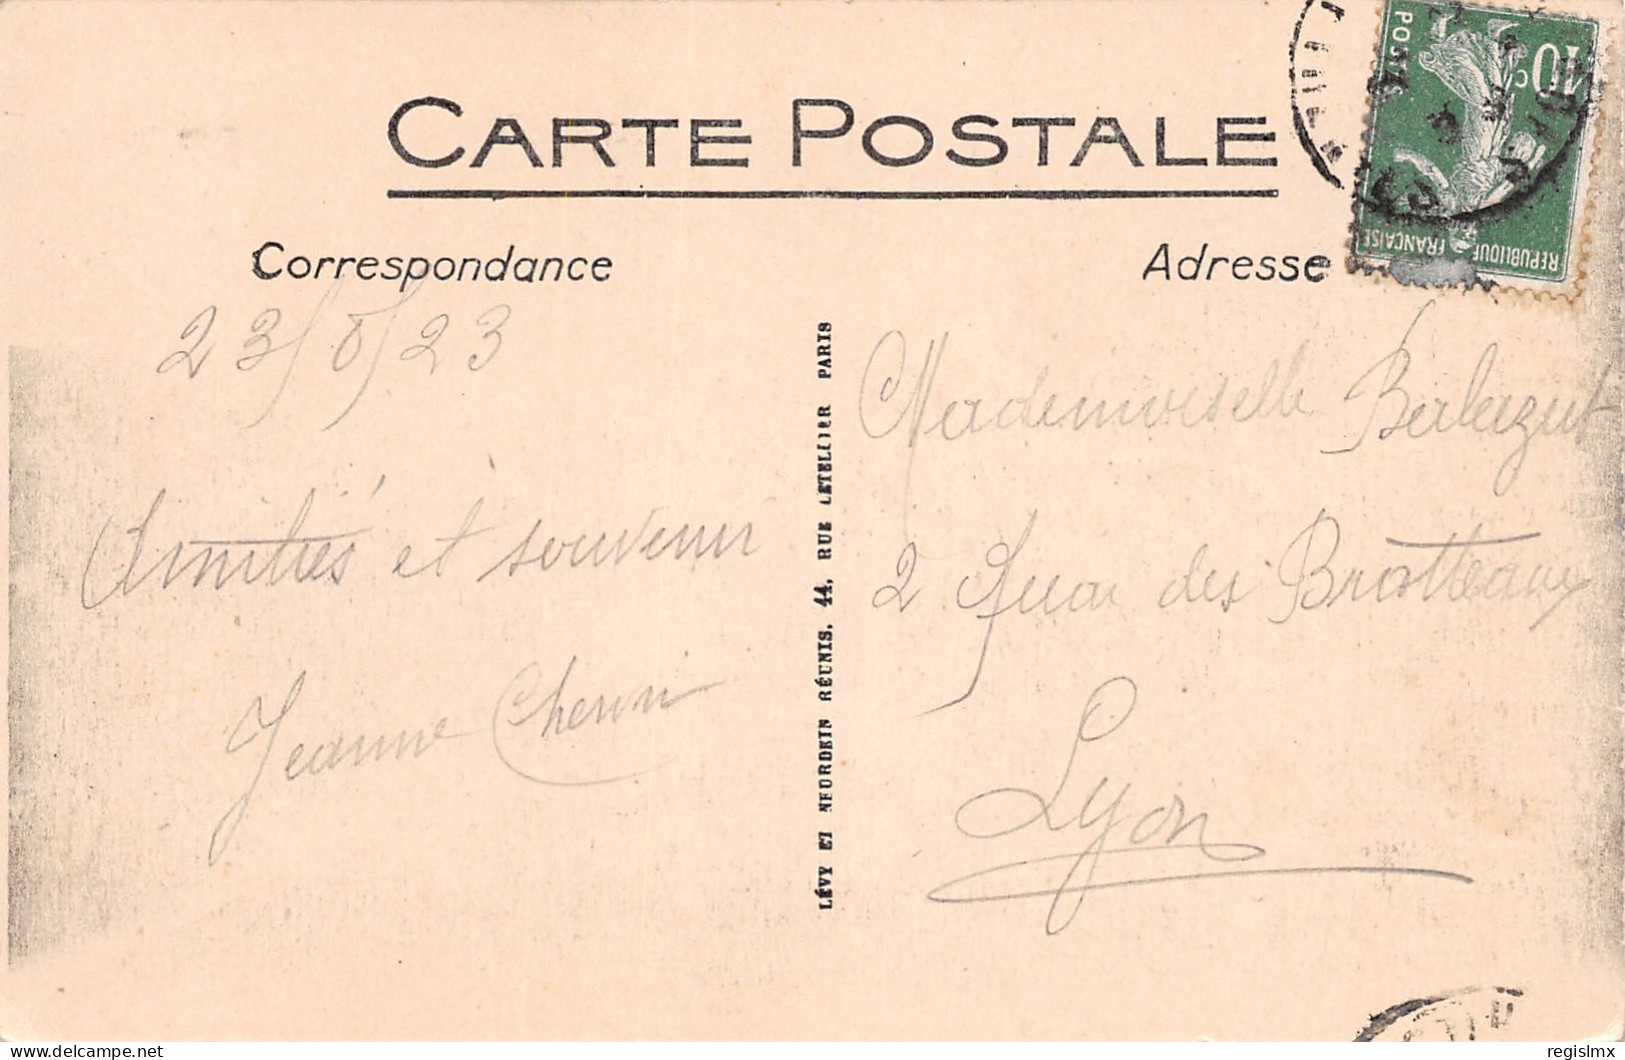 CARTE POSTALE
Correspondance
23/8/23
Amitiés et souvenir
Jeanne
LÉVY ET NEURDEIN RÉUNIS, 44, RUE LETELLIER PARIS
Adresse
Mademoiselle
2 Quai des Brotteaux
Lyon
POSTES
10c
REPUBLIQUE FRANÇAISE
delcampe.net
regislmx